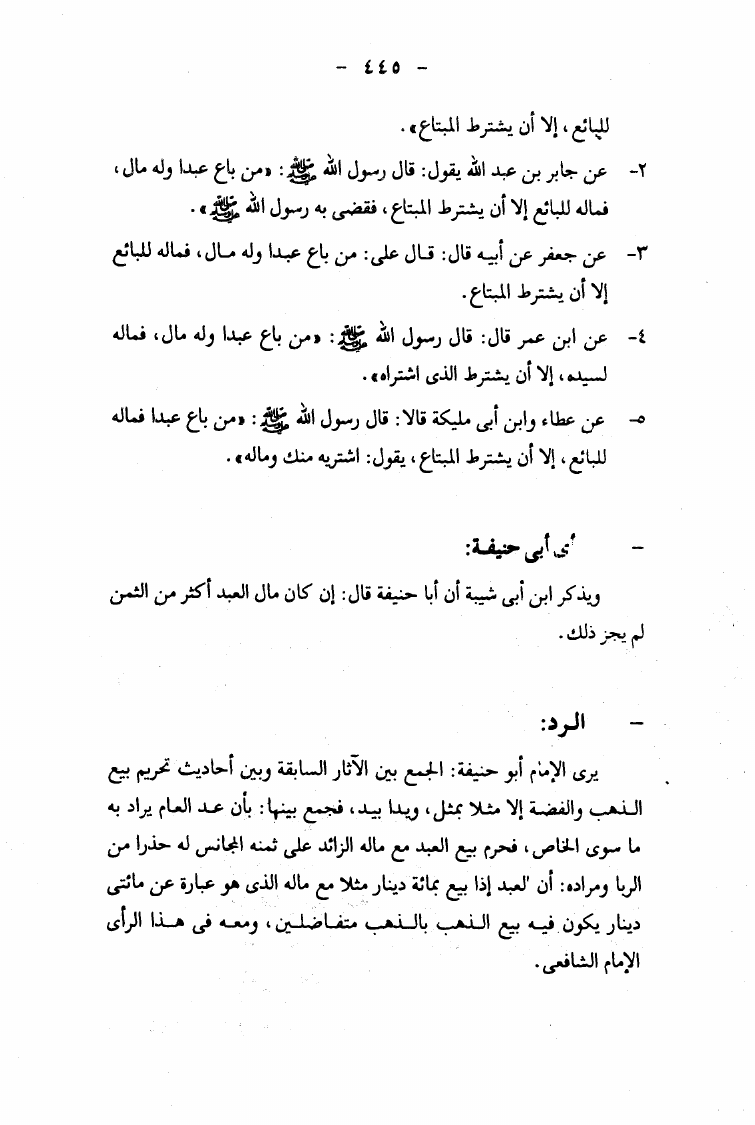 - ٤٤٥ -
للبائع، إلا أن يشترط المبتاع».
٢- عن جابر بن عبد الله يقول: قال رسول الله ﷺ: «من باع عبدا وله مال،
فماله للبائع إلا أن يشترط المبتاع، فقضى به رسول الله ﷺ».
٣- عن جعفر عن أبيه قال: قال على: من باع عبدا وله مال، فماله للبائع
إلا أن يشترط المبتاع.
٤- عن ابن عمر قال: قال رسول الله ﷺ: «من باع عبدا وله مال، فماله
لسيده، إلا أن يشترط الذى اشتراه».
٥- عن عطاء وابن أبى مليكة قالا: قال رسول الله ﷺ: «من باع عبدا فماله
للبائع، إلا أن يشترط المبتاع، يقول: اشتريه منك وماله».
- أى أبى حنيفة:
ويذكر ابن أبى شيبة أن أبا حنيفة قال: إن كان مال العبد أكثر من الثمن
لم يجز ذلك.
- الرد:
يرى الإمام أبو حنيفة: الجمع بين الآثار السابقة وبين أحاديث تحريم بيع
الذهب والفضة إلا مثلا بمثل، ويدا بيد، فجمع بينها: بأن عد العام يراد به
ما سوى الخاص، فحرم بيع العبد مع ماله الزائد على ثمنه المجانس له حذرا من
الربا ومراده: أن العبد إذا بيع بمائة دينار مثلا مع ماله الذى هو عبارة عن مائتى
دينار يكون فيه بيع الذهب بالذهب متفاضلين، ومعه فى هذا الرأى
الإمام الشافعى.